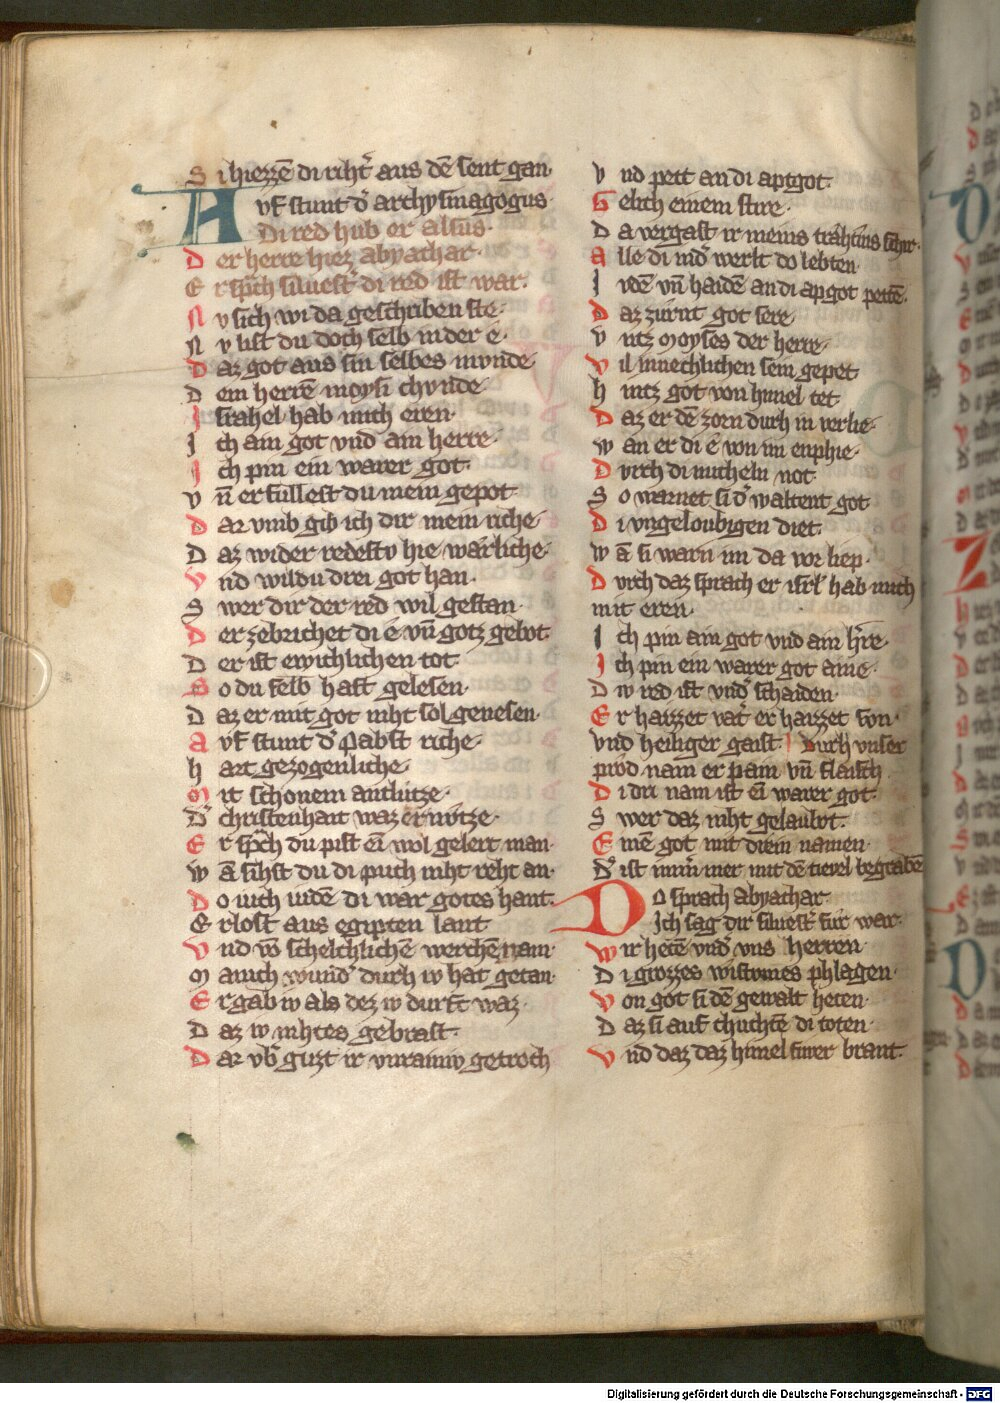 S i hiezzē di richt᷑ aus dē sent gan·
A vf stunt d᷑ archysinagogus·
Di red hub er alsus·
D er herre hiez abyachar·
E r sp̄ch siluest᷑ di red ist war·
N v sich wi da geschriben ste·
N v list du doch selb in der e·
D az got aus sin selbes mvnde·
D em herrē moysi chvnde·
I srahel hab mich eren·
I ch ain got vnd ain herre·
I ch pin ein warer got·
V n̄ erfullest du mein gepot·
D ar vmb gib ich dir mein riche·
D az wider redestv hie wærliche·
V nd wildu drei got han·
S wer dir der red wil gestan·
D er zebrichet di e vn̄ gotz gebot·
D er ist ewichlichen tot·
S o du selb hast gelesen·
D az er mit got niht sol genesen·
A vf stunt d᷑ pabst riche·
h art gezogenliche·
M it schonem antlutze·
D᷑ christenhait waz er nutze·
E r sp̄ch du pist eī wol gelert man·
W ā sihst du di puch niht reht an·
D o iuch iudē di war gotes hant·
E rlost aus egipten lant
V nd vō schelchlichē werchē nam·
M anich wund᷑ durh iv hat getan·
E r gab iv als dez iv durft waz·
D az iv nihtes gebrast·
D ar vb᷑ guzt ir
V nd pett an di aptgot·
G elich einem stire·
D a vergast ir meins træhtins schir·
A lle di in d᷑ werlt do lebten·
I vdē vn̄ haidē an di apgot pettē·
D az zurnt got sere·
V ntz moyses der herre·
V il innechlichen sein gepet
h intz got von himel tet
D az er dē zorn durh in verlie·
W an er di e von im enphie·
D vrch di micheln not·
S o warnet si d᷑ waltent got
D i vngeloubigen diet·
W ā si warn im da vor liep·
D vrch daz sprach er isrl᷑ hab mich
mit eren·
I ch pin ain got vnd ain h᷑re·
I ch pin ein warer got aine·
D iv red ist vnd᷑ schaiden·
E r haizzet vat᷑ er haizzet svn·
vnd heiliger gaist· Durh vnser
prod nam er pain vn̄ flaisch
D i dri nam ist eī warer got·
S wer daz niht gelaubt·
E inē got mit drein namen·
D᷑ ist im̄ mer mit dē tievel begrabē
D o sprach abyachar·
Ich sag dir siluest᷑ fur war·
W ir hetē vnd᷑ vns herren·
D i grozzes wistvmes phlagen·
V on got si dē gewalt heten·
D az si auf chuchtē di toten·
V nd daz daz himel fiwer brant·
Digitalisierung gefördert durch die Deutsche Forschungsgemeinschaft - DFG